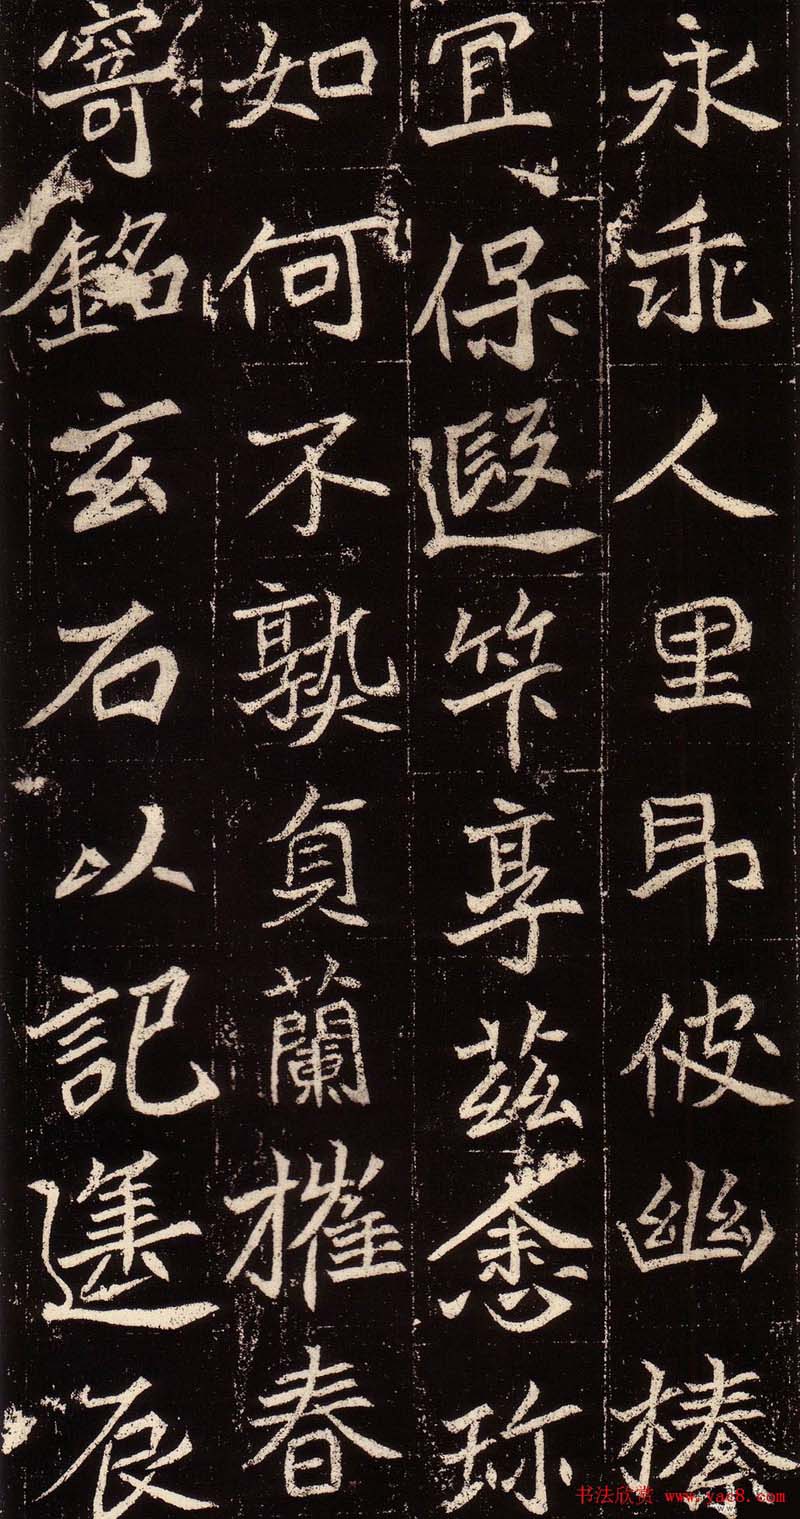 永乖人里即彼幽榛
宜保遐笇享茲悆珍
如何不熟貞蘭摧春
寄銘玄石以記遷辰
书法欣赏 www.yac8.com